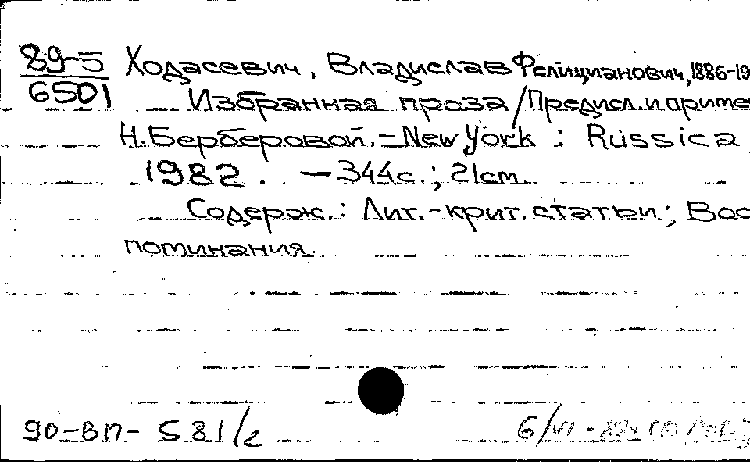 89-5 Ходасевич, Владислав Фелицианович, 1886-19
6501 Избранная проза / Предисл. и приме
Н. Берберовой. – New York : Russica
1982. – 344с. ; 21cm.
Содерж. : Лит.-крит. статьи ; Вос
поминания.
90-ВП- 581/2